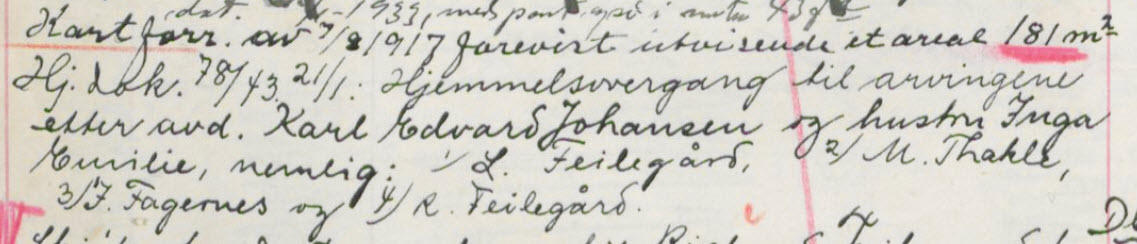 dat. 1933, med pant
Kartforr. av 7/8 1917 forevist utvisende et areal 181 m²
Hj. dok. 78/43 21/1: Hjemmelsovergang til arvingene
etter avd. Karl Edvard Johansen og hustru Inga
Emilie, nemlig: 1/ L. Feilegård, 2/ M. Thakle,
3/ J. Fagernes og 4/ R. Feilegård.